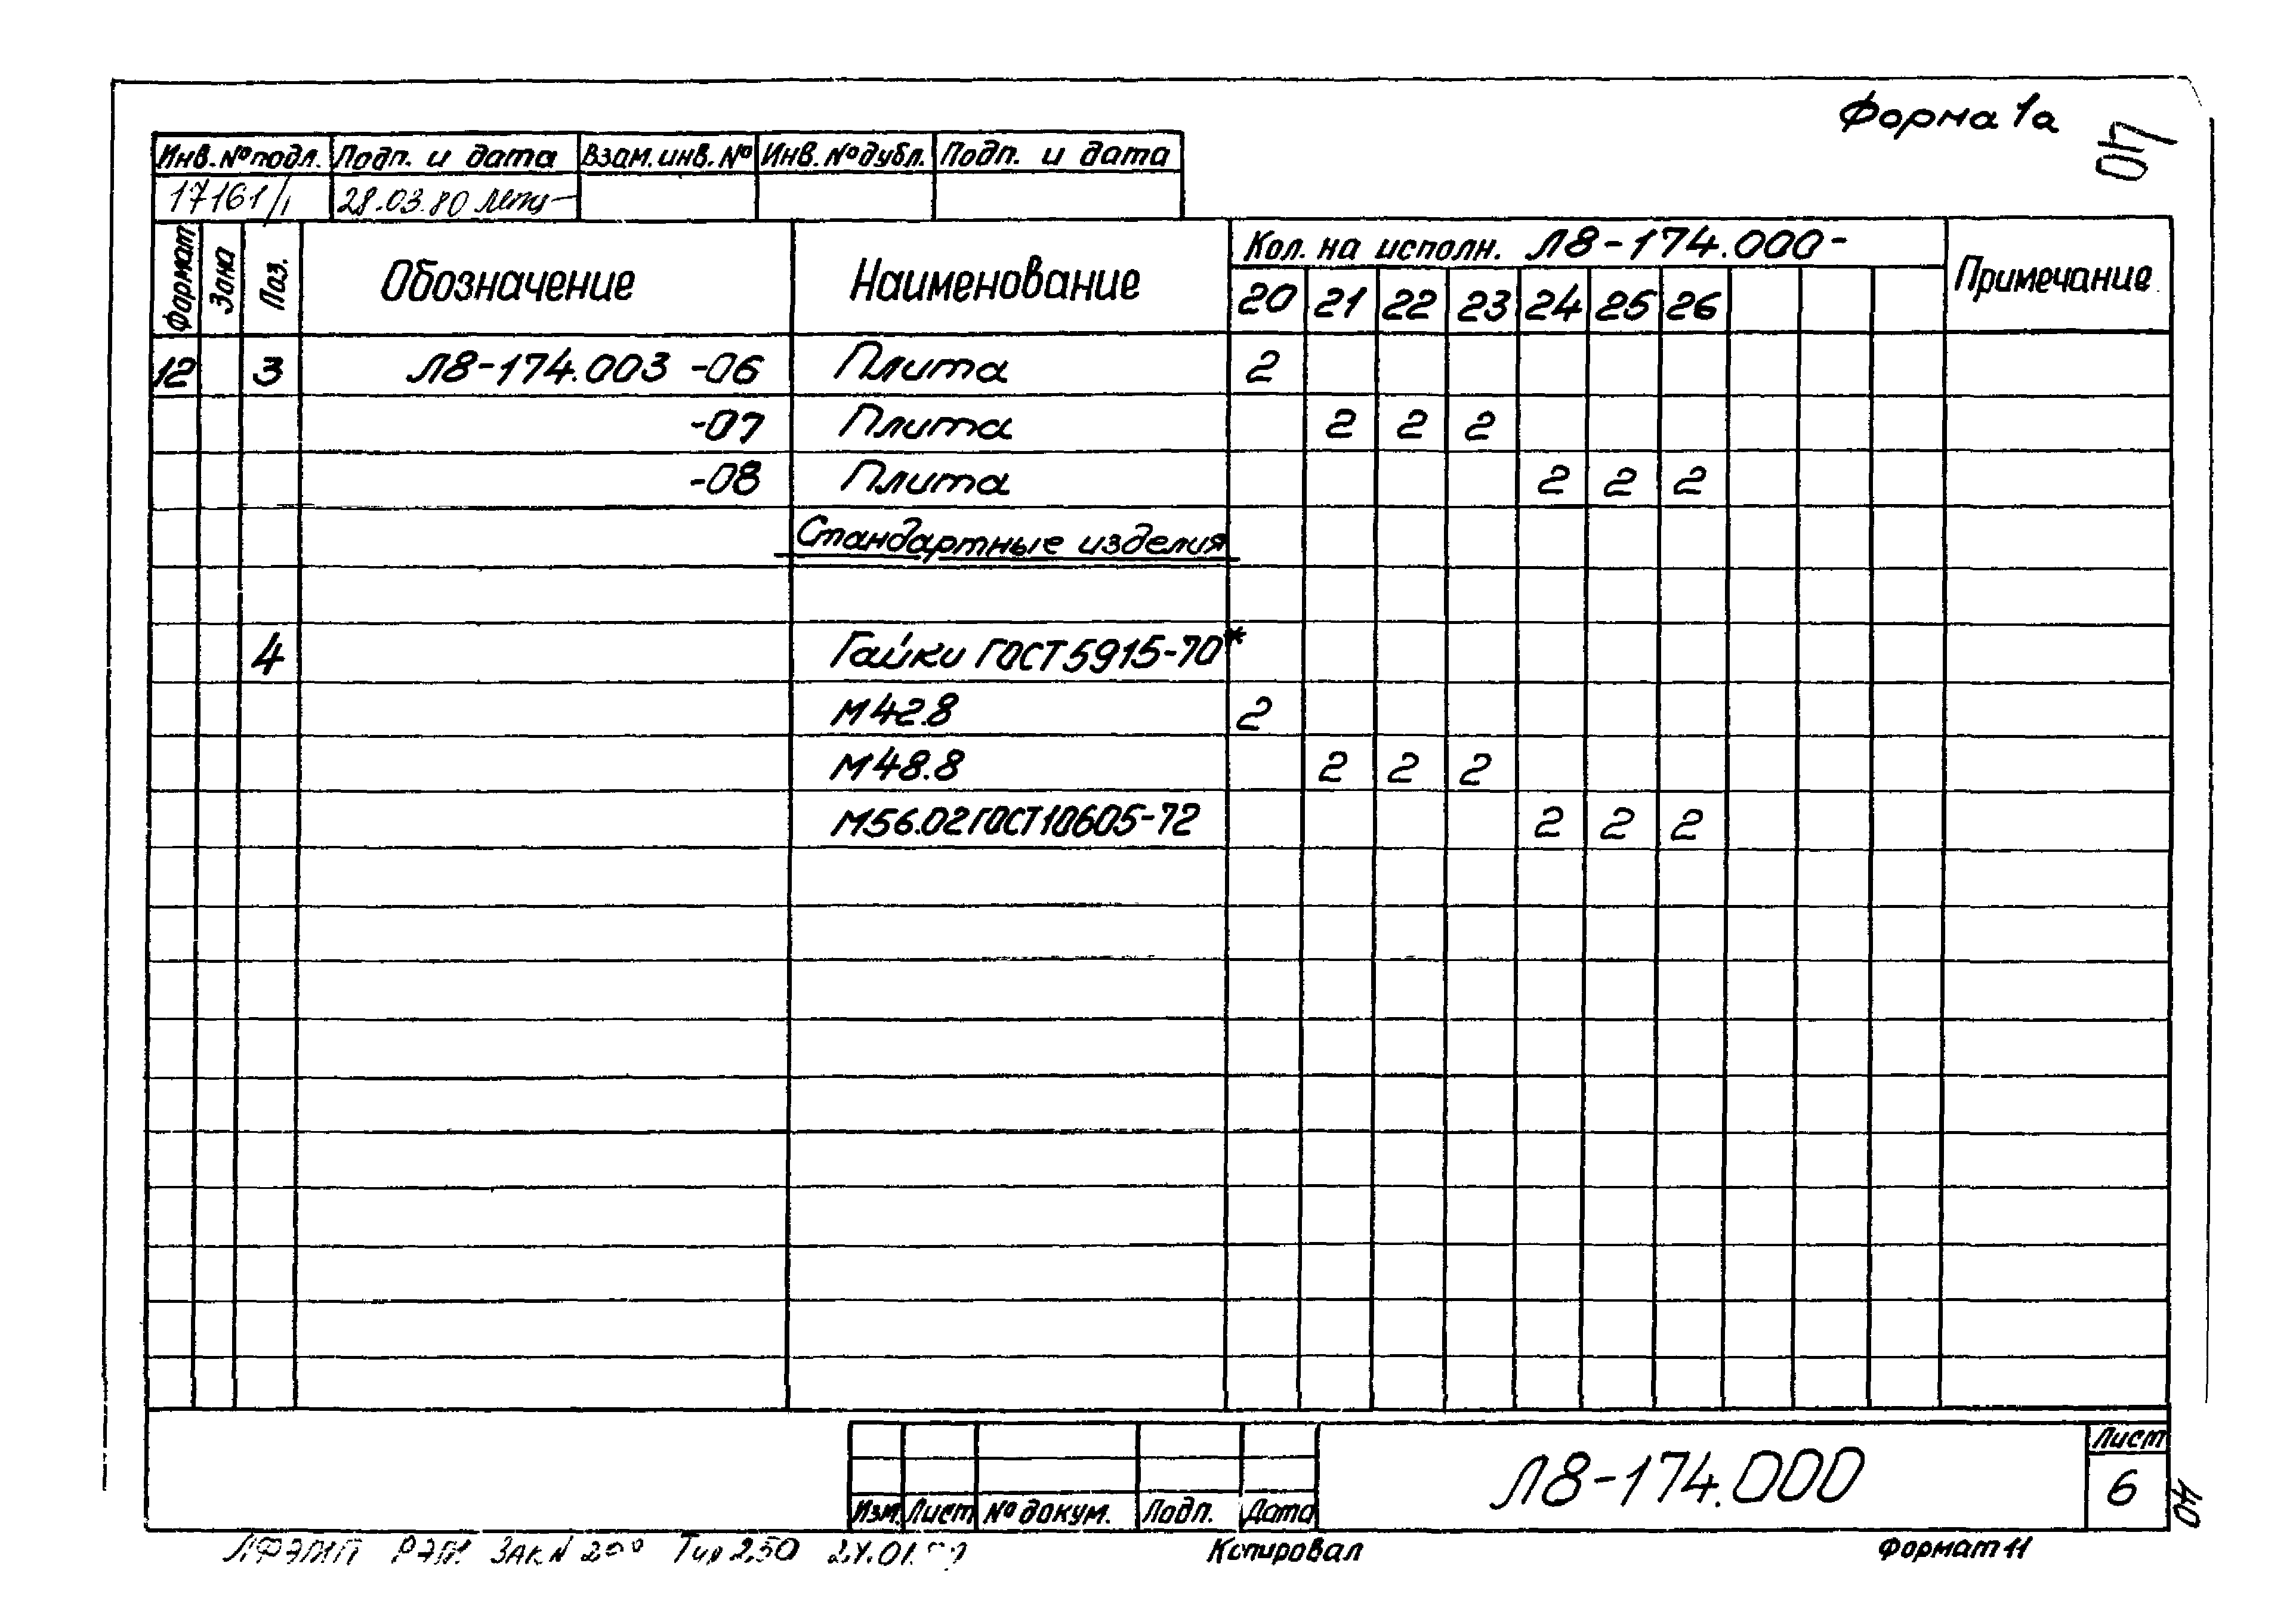 Форма 1а
40
Инв.№подл. Подп. и дата Взам.инв.№ Инв.№дубл. Подп. и дата
17161/1 28.03.80
Формат Зона Поз. Обозначение Наименование Кол. на исполн. Л8-174.000- Примечание
20 21 22 23 24 25 26
12 3 Л8-174.003 -06 Плита 2
-07 Плита 2 2 2
-08 Плита 2 2 2
Стандартные изделия
4 Гайки ГОСТ 5915-70*
М42.8 2
М48.8 2 2 2
М56.02 ГОСТ 10605-72 2 2 2
Изм. Лист № докум. Подп. Дата
Л8-174.000
Лист
6
40
Копировал
Формат 11